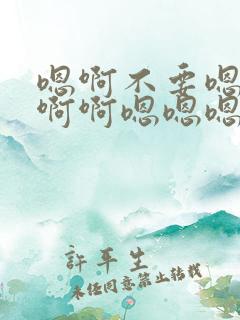 嗯啊不要嗯
啊啊嗯嗯嗯
許平生
未经同意禁止转载